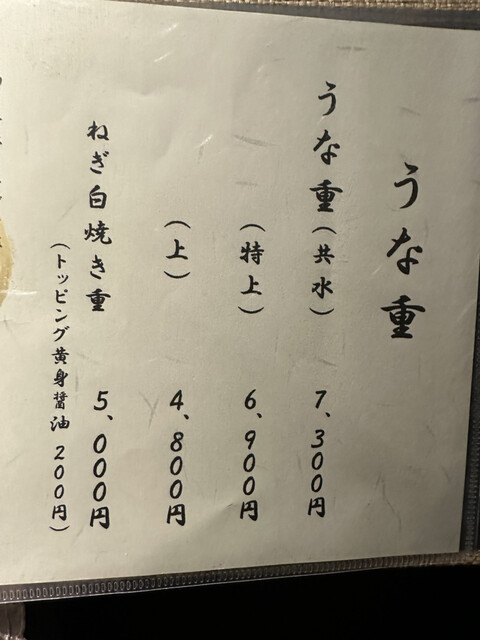 うな重
うな重（共水） 7、300円
（特上） 6、900円
（上） 4、800円
ねぎ白焼き重 5、000円
（トッピング黄身醤油 200円）